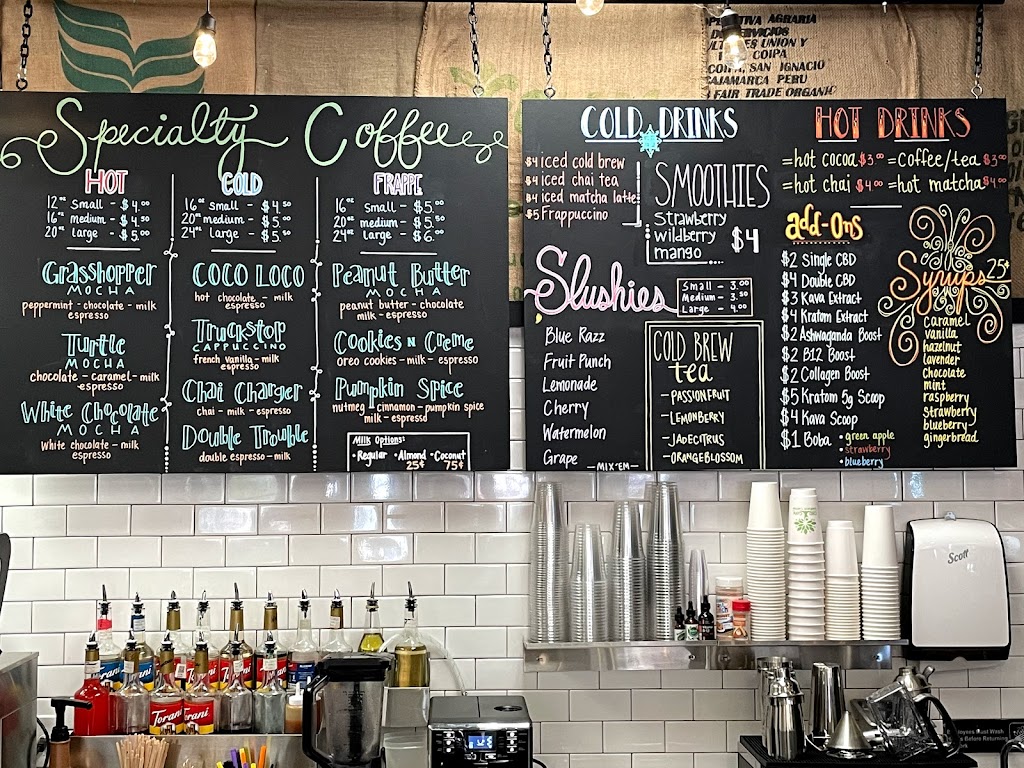 OPERATIVA AGRARIA
DE SERVICIOS
MULTIPLES UNION Y
COIPA
COIPA, SAN IGNACIO
CAJAMARCA PERU
FAIR TRADE ORGANIC
Specialty Coffee
HOT
12oz Small - $4.00
16oz medium - $4.50
20oz large - $5.00
Grasshopper
MOCHA
peppermint - chocolate - milk
espresso
Turtle
MOCHA
chocolate - caramel - milk
espresso
White Chocolate
MOCHA
White chocolate - milk
espresso
COLD
16oz Small - $4.50
20oz medium - $5.00
24oz large - $5.50
COCO LOCO
hot chocolate - milk
espresso
Truckstop
CAPPUCCINO
french vanilla - milk
espresso
Chai Charger
chai - milk - espresso
Double Trouble
double espresso - milk
FRAPPE
16oz Small - $5.00
20oz medium - $5.50
24oz Large - $6.00
Peanut Butter
MOCHA
peanut butter - chocolate
milk - espresso
Cookies N Creme
oreo cookies - milk - espresso
Pumpkin Spice
nutmeg - cinnamon - pumpkin spice
milk - espresso
Milk Options:
•Regular •Almond •Coconut
25¢ 75¢
COLD DRINKS
$4 iced cold brew
$4 iced chai tea
$4 iced matcha latte
$5 Frappuccino
SMOOTHIES
Strawberry
wildberry
mango
$4
Slushies
Small - 3.00
Medium - 3.50
Large - 4.00
Blue Razz
Fruit Punch
Lemonade
Cherry
Watermelon
Grape
—MIX 'EM—
COLD BREW
tea
- PASSIONFRUIT
- LEMONBERRY
- JADECITRUS
- ORANGEBLOSSOM
HOT DRINKS
=hot cocoa $3.00 =Coffee/tea $3.00
=hot chai $4.00 =hot matcha $4.00
add-ons
$2 Single CBD
$4 Double CBD
$3 Kava Extract
$4 Kratom Extract
$2 Ashwaganda Boost
$2 B12 Boost
$2 Collagen Boost
$5 Kratom 5g Scoop
$4 Kava Scoop
$1 Boba • green apple
• strawberry
• blueberry
Syrups 25¢
caramel
vanilla
hazelnut
lavender
Chocolate
mint
raspberry
Strawberry
blueberry
gingerbread
Scott
Torani
Torani
Torani
Employees Must Wash
Before Returning